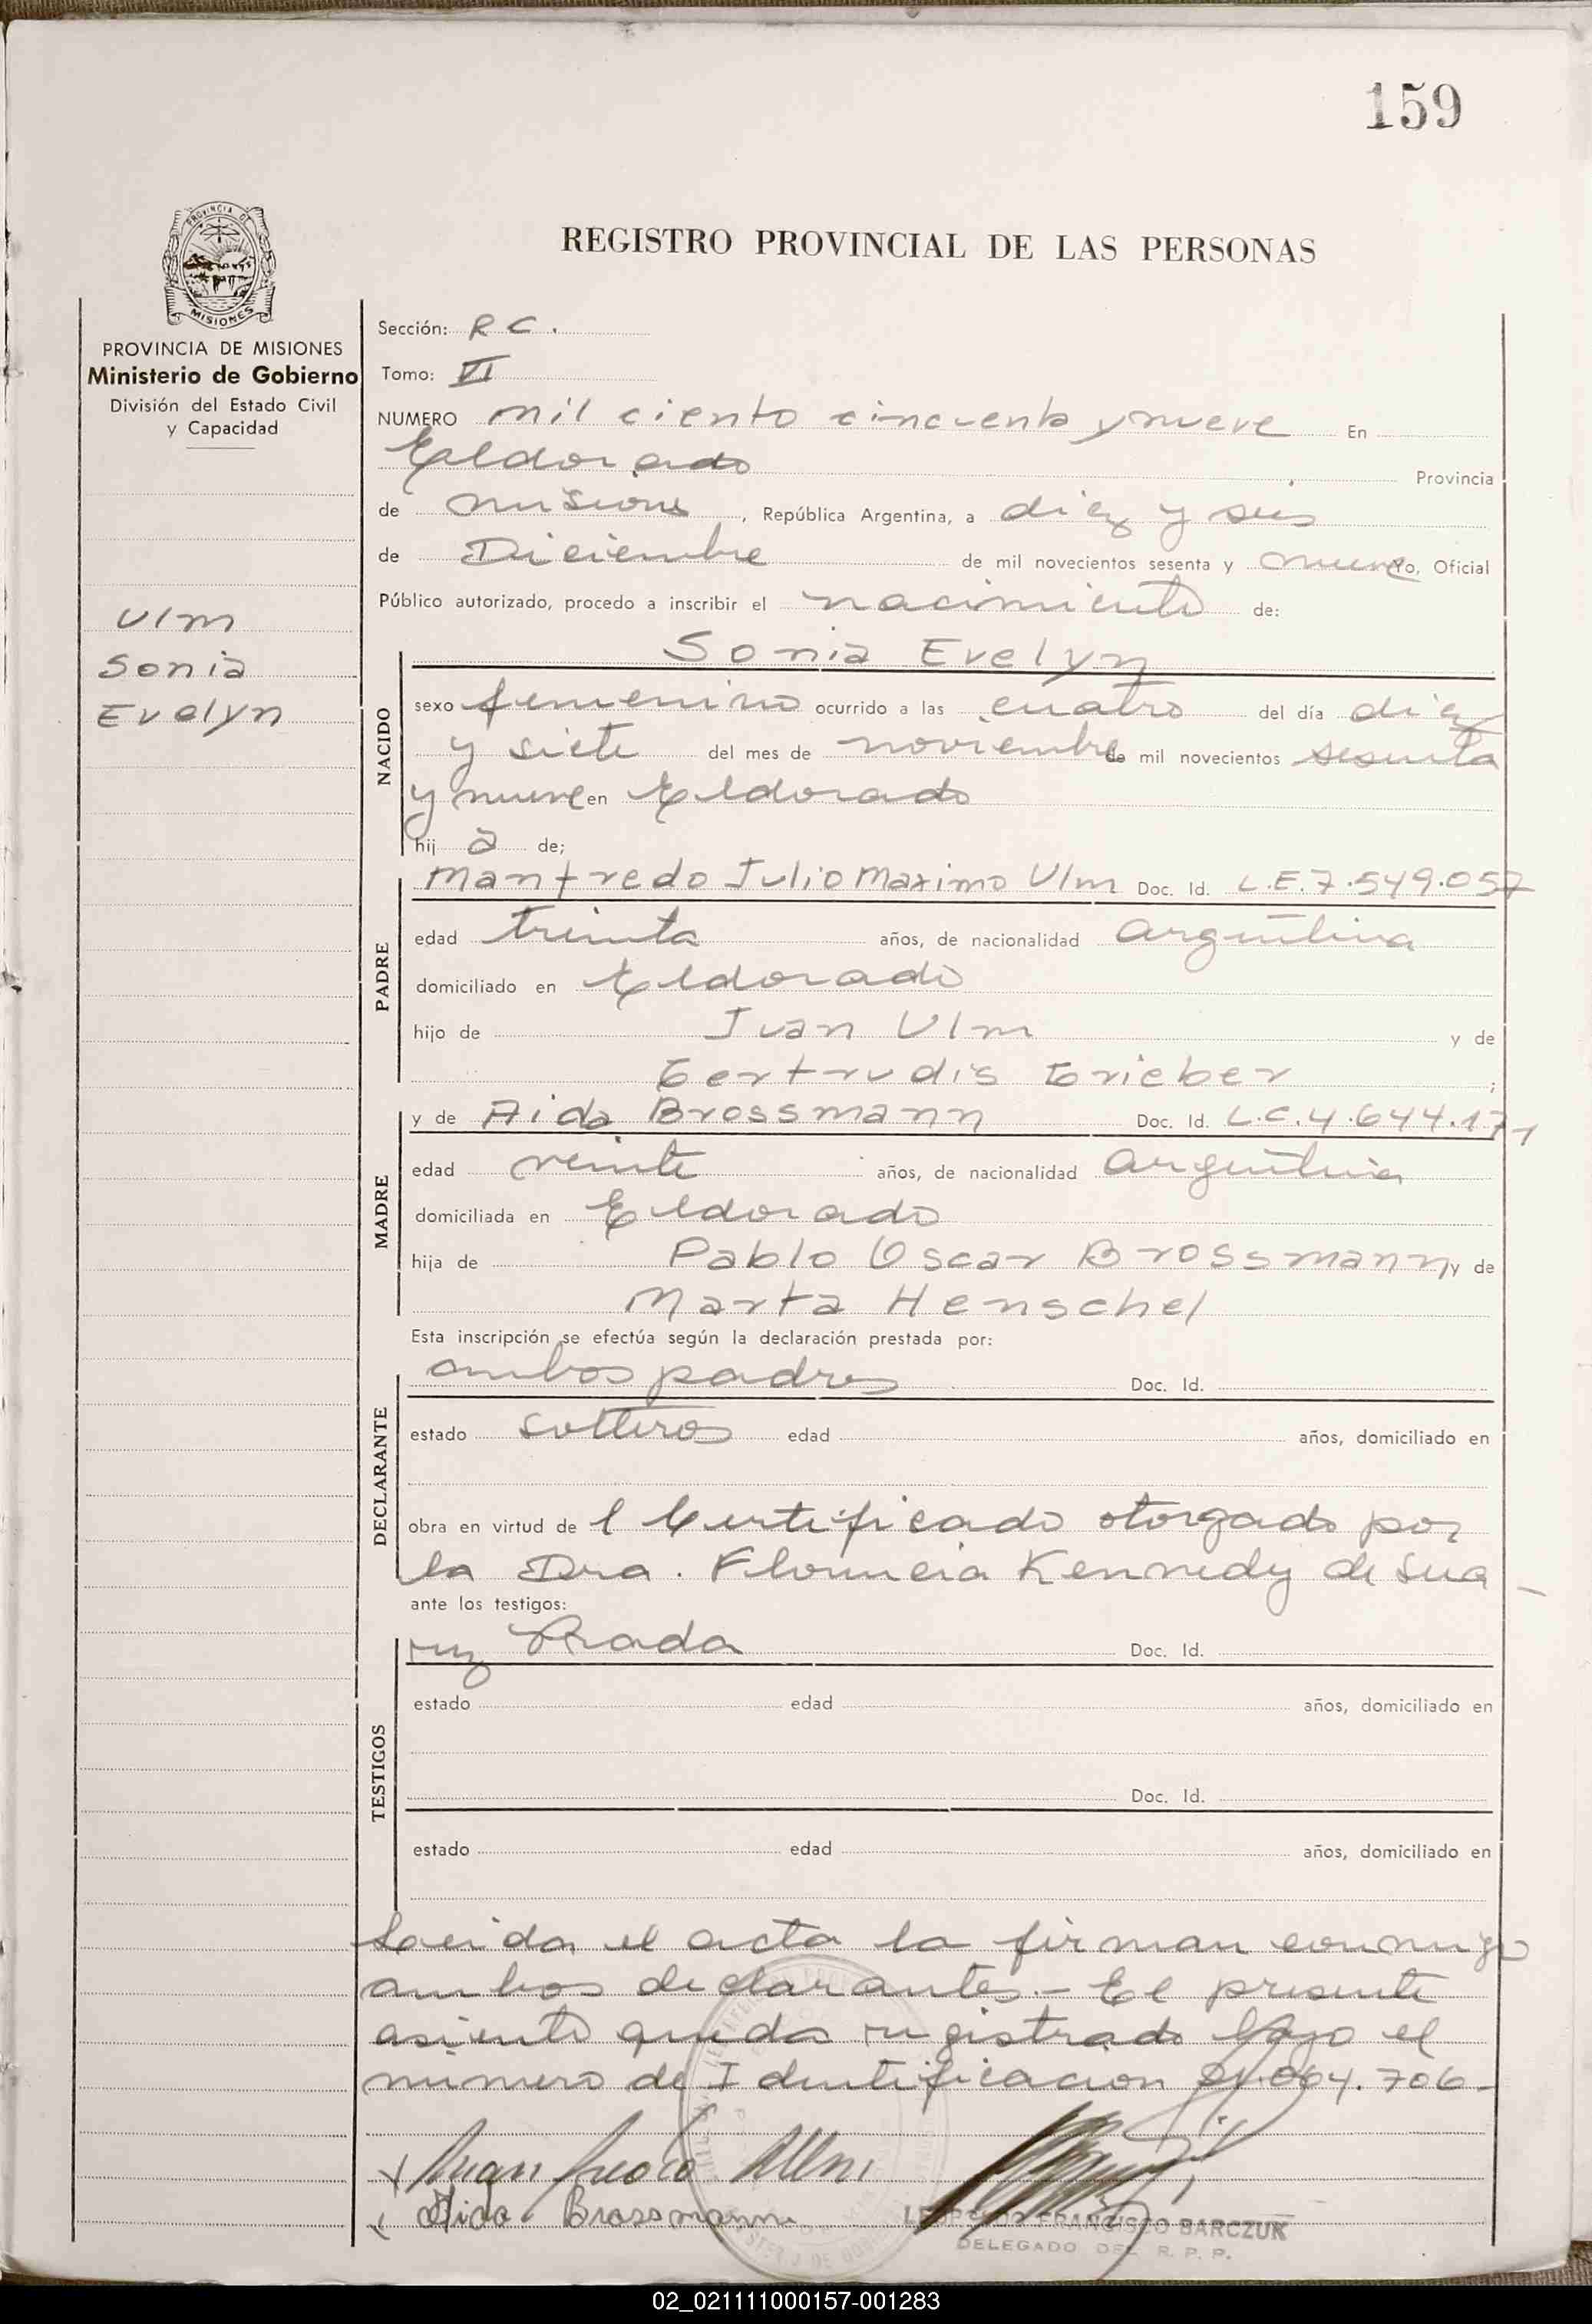 159
PROVINCIA DE
MISIONES
REGISTRO PROVINCIAL DE LAS PERSONAS
PROVINCIA DE MISIONES
Ministerio de Gobierno
División del Estado Civil
y Capacidad
Ulm
Sonia
Evelyn
Sección: R C.
Tomo: VI
NUMERO mil ciento cincuenta y nueve En
Eldorado Provincia
de misiones, República Argentina, a diez y seis
de Diciembre de mil novecientos sesenta y nueve Yo, Oficial
Público autorizado, procedo a inscribir el nacimiento de:
Sonia Evelyn
NACIDO
sexo femenino ocurrido a las cuatro del día diez
y siete del mes de noviembre de mil novecientos sesenta
y nueve en Eldorado
hij a de;
PADRE
Manfredo Julio Maximo Ulm Doc. Id. L.E. 7.549.057
edad treinta años, de nacionalidad argentina
domiciliado en Eldorado
hijo de Juan Ulm y de
Gertrudis Grieber;
MADRE
y de Aida Brossmann Doc. Id. L.C. 4.644.171
edad veinte años, de nacionalidad argentina
domiciliada en Eldorado
hija de Pablo Oscar Brossmann y de
Marta Henschel
Esta inscripción se efectúa según la declaración prestada por:
DECLARANTE
ambos padres Doc. Id.
estado solteros edad años, domiciliado en
obra en virtud de l Certificado otorgado por
la Dra. Florencia Kennedy de Sua
ante los testigos:
TESTIGOS
rez Prada Doc. Id.
estado edad años, domiciliado en
Doc. Id.
estado edad años, domiciliado en
Leida el acta la firman conmigo
ambos declarantes.- El presente
asiento queda registrado bajo el
numero de Identificacion 21.064.706-
Aida Brossmann
LEOPOLDO FRANCISCO BARCZUK
DELEGADO DEL R. P. P.
02_021111000157-001283